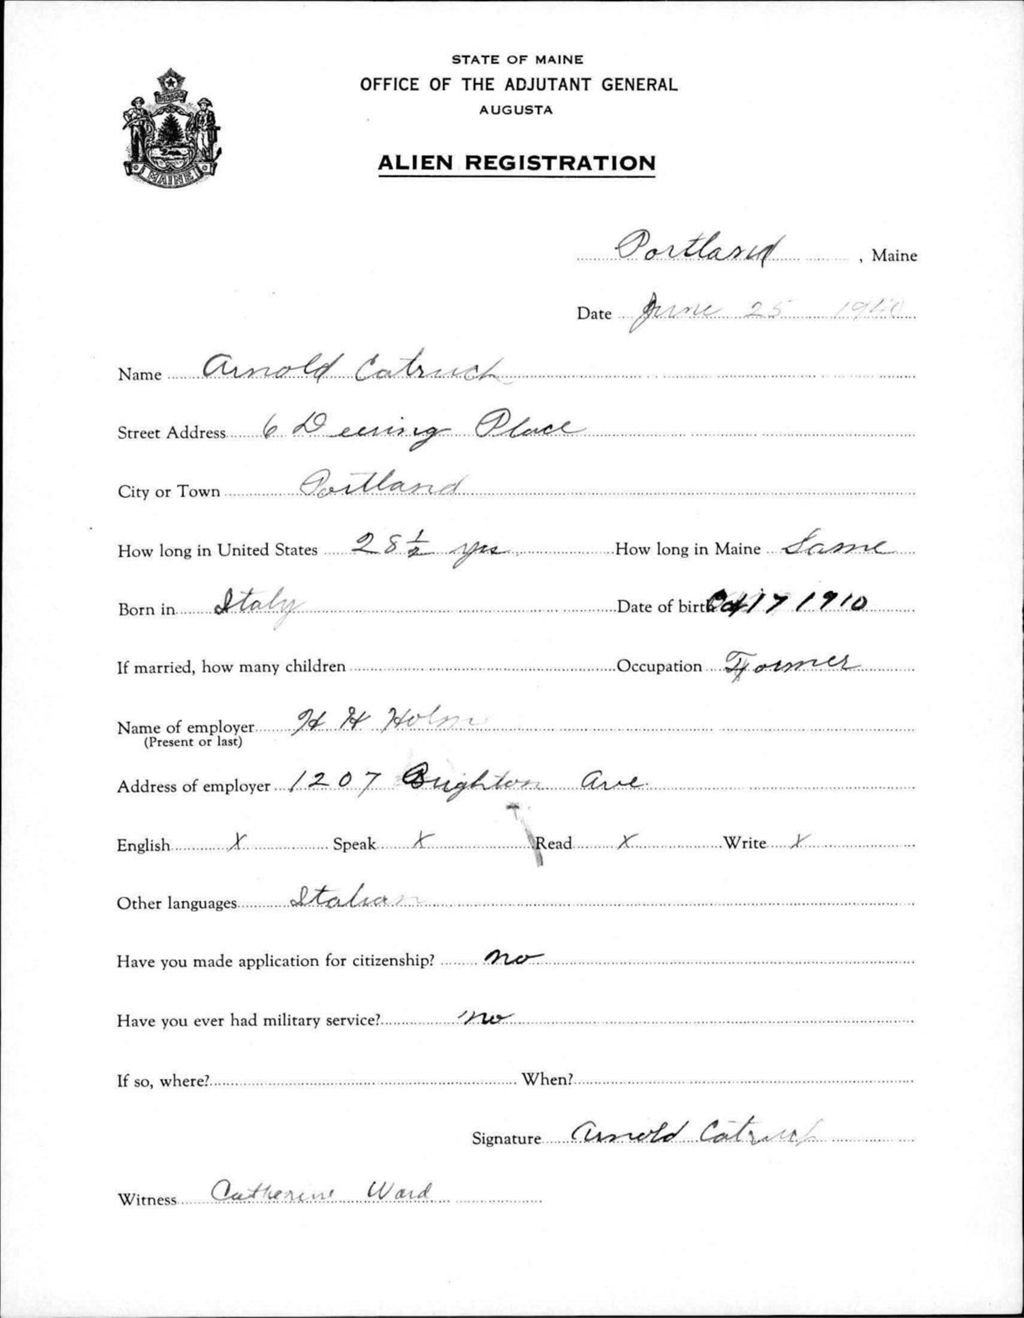 STATE OF MAINE
OFFICE OF THE ADJUTANT GENERAL
AUGUSTA
MAINE
ALIEN REGISTRATION
Portland, Maine
Date June 25 1940
Name Arnold Catruch
Street Address 6 Deering Place
City or Town Portland
How long in United States 28 1/2 yrs How long in Maine Same
Born in Italy Date of birth Oct 17 1910
If married, how many children Occupation
Name of employer H H Holm
(Present or last)
Address of employer 1207 Brighton Ave.
English X Speak X Read X Write X
Other languages Italian
Have you made application for citizenship? no
Have you ever had military service? no
If so, where? When?
Signature Arnold Catruch
Witness Catherine Ward